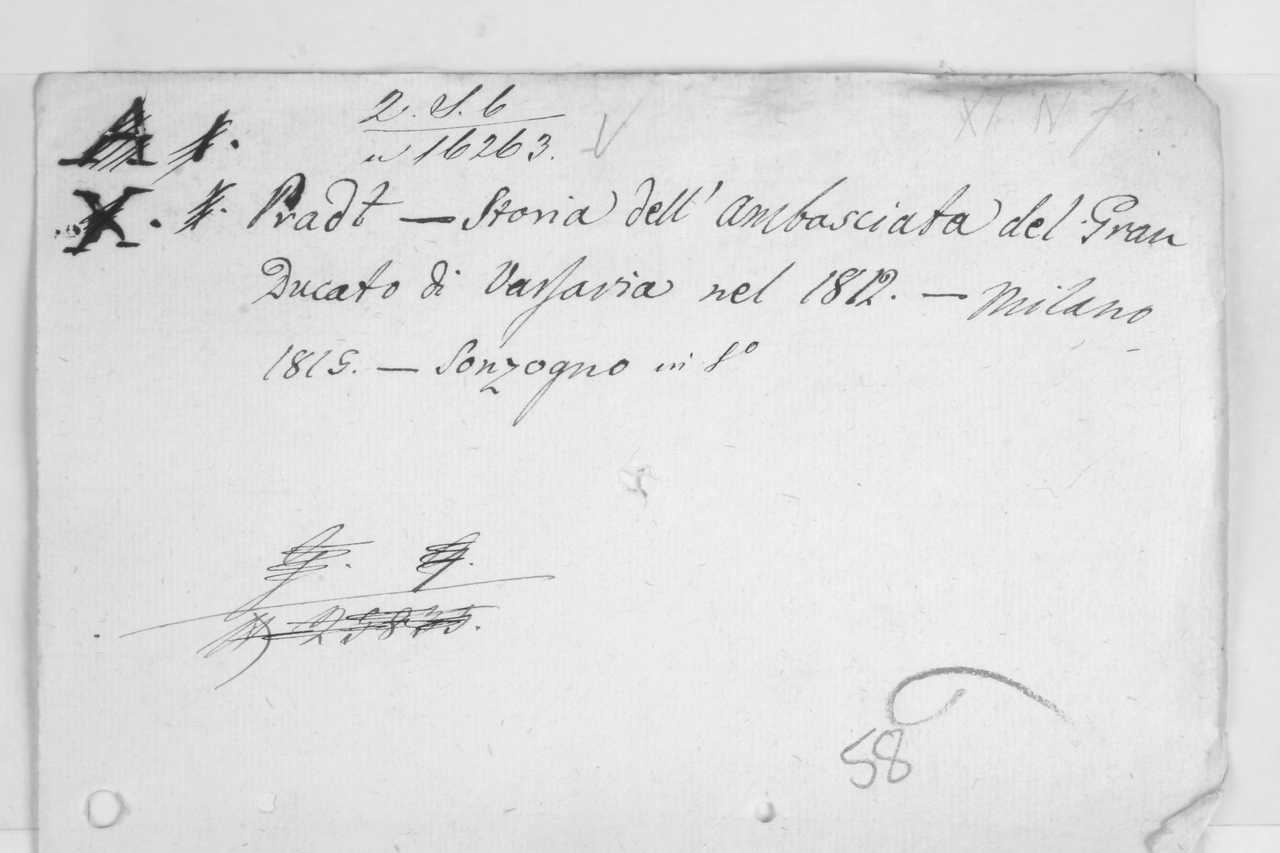 2. S. 6
n 16263. V
XI N
Pradt — Storia dell' ambasciata del Gran
Ducato di Varsavia nel 1812. — Milano
1815. — Sonzogno in 8º
N 25835.
58